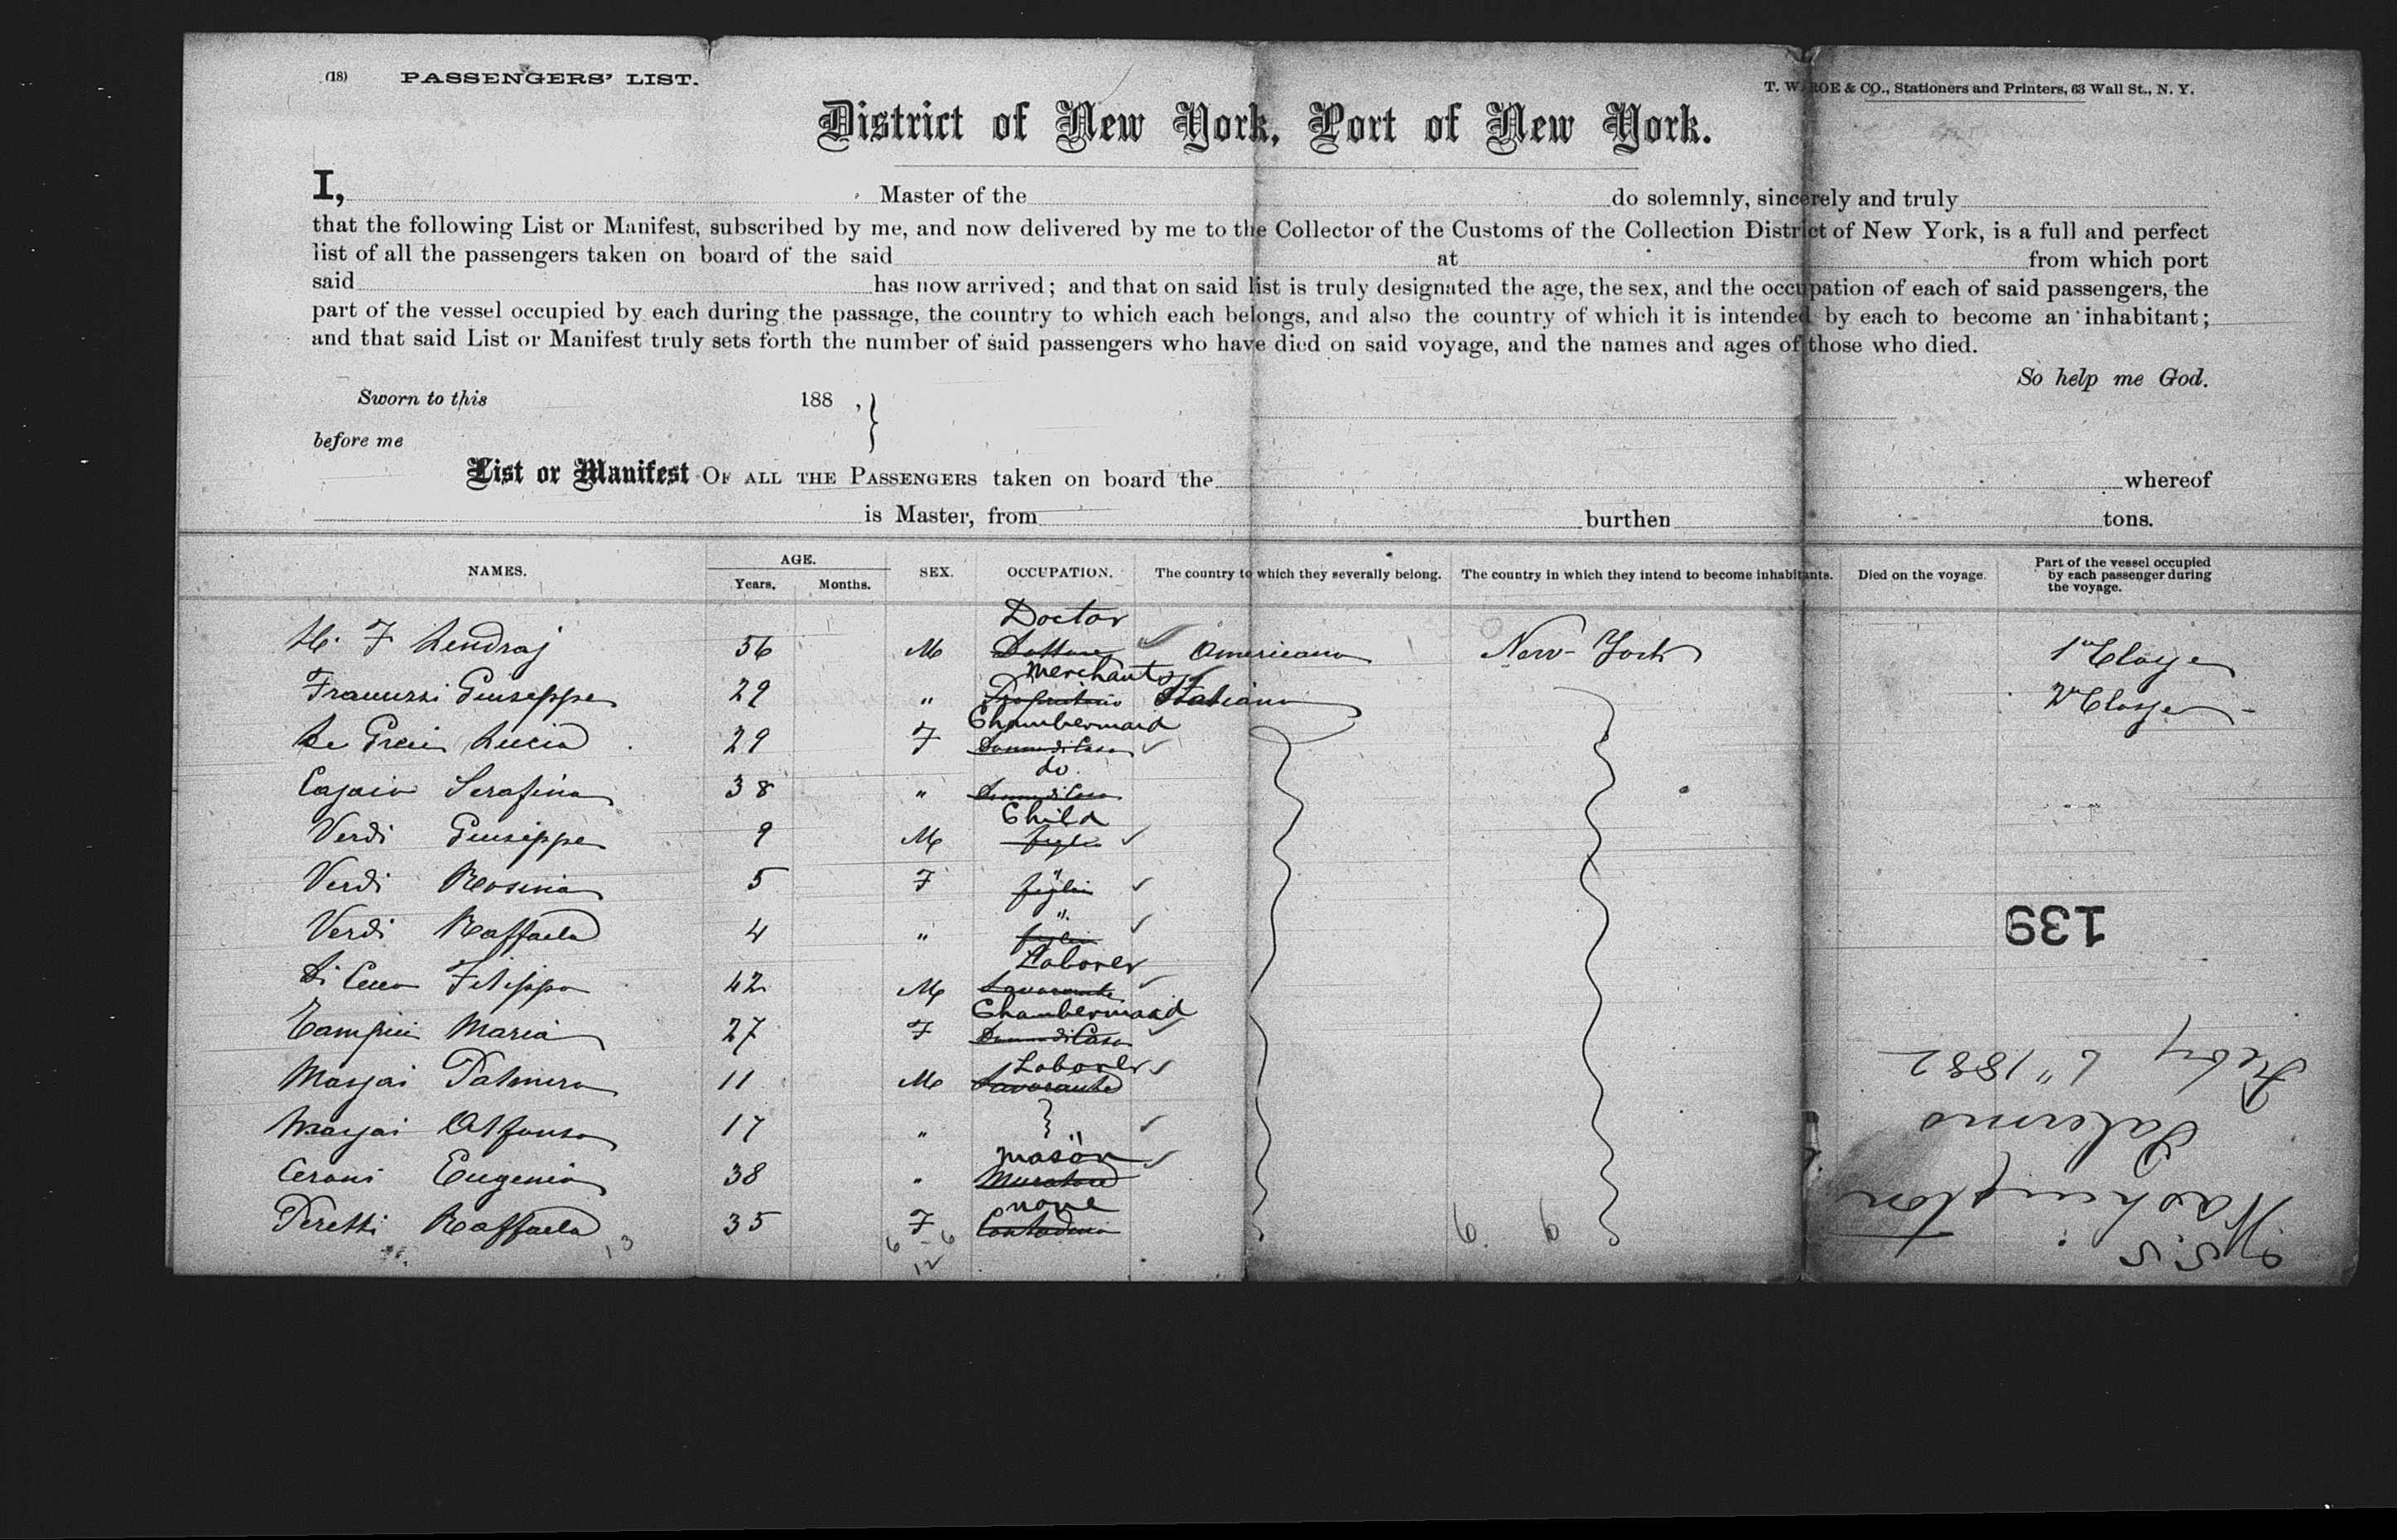 (18) PASSENGERS' LIST. T. W. ROE & CO., Stationers and Printers, 63 Wall St., N. Y.
District of New York, Port of New York.
I, Master of the do solemnly, sincerely and truly
that the following List or Manifest, subscribed by me, and now delivered by me to the Collector of the Customs of the Collection District of New York, is a full and perfect
list of all the passengers taken on board of the said at from which port
said has now arrived; and that on said list is truly designated the age, the sex, and the occupation of each of said passengers, the
part of the vessel occupied by each during the passage, the country to which each belongs, and also the country of which it is intended by each to become an inhabitant;
and that said List or Manifest truly sets forth the number of said passengers who have died on said voyage, and the names and ages of those who died.
So help me God.
Sworn to this 188 ,
before me
List or Manifest OF ALL THE PASSENGERS taken on board the whereof
is Master, from burthen tons.
NAMES. AGE. Years. Months. SEX. OCCUPATION. The country to which they severally belong. The country in which they intend to become inhabitants. Died on the voyage. Part of the vessel occupied by each passenger during the voyage.
Doctor
H. F 56 M Dottore Americano New-York 1a Classe
Merchant
Giuseppe 29 " Italiano 2a Classe
Chambermaid
Lucia 29 F Donna di Casa
do.
Serafina 38 " Donna di Casa
Child
Verdi Giuseppe 9 M figlio
"
Verdi Rosina 5 F figlia
"
Verdi Raffaela 4 " figlia
Laborer
Di Filippo 42 M Lavorante
Chambermaid
Maria 27 F Donna di Casa
Laborer
Palmero 11 M Lavorante
Alfonso 17 " "
Mason
Ceroni Eugenio 38 " Muratore
none
Peretti Raffaela 35 F Contadina
13 6 - 6 6. 6
12
139
S.S.
Washington
Palermo
Feby 6" 1882